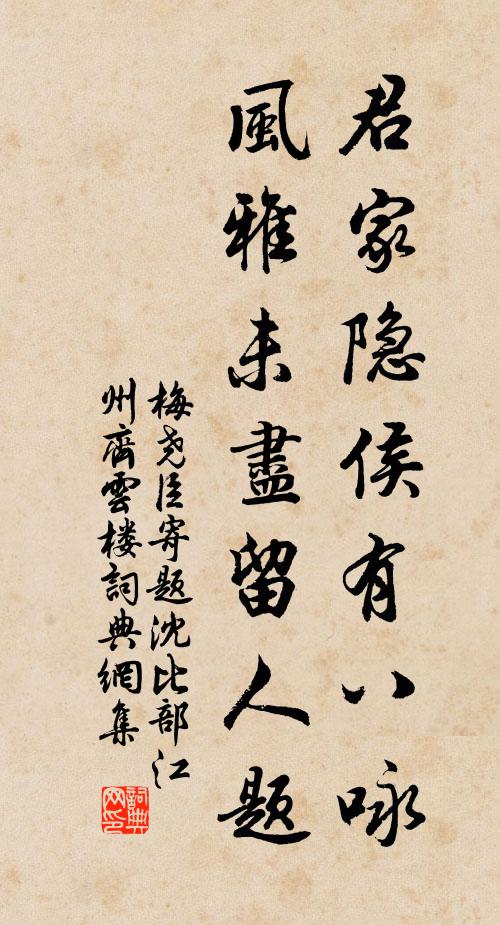 君家隐侯有八咏
風雅未盡留人题
梅尧臣寄题沈比部江
州齊雲楼詞典網集
詞典
网印